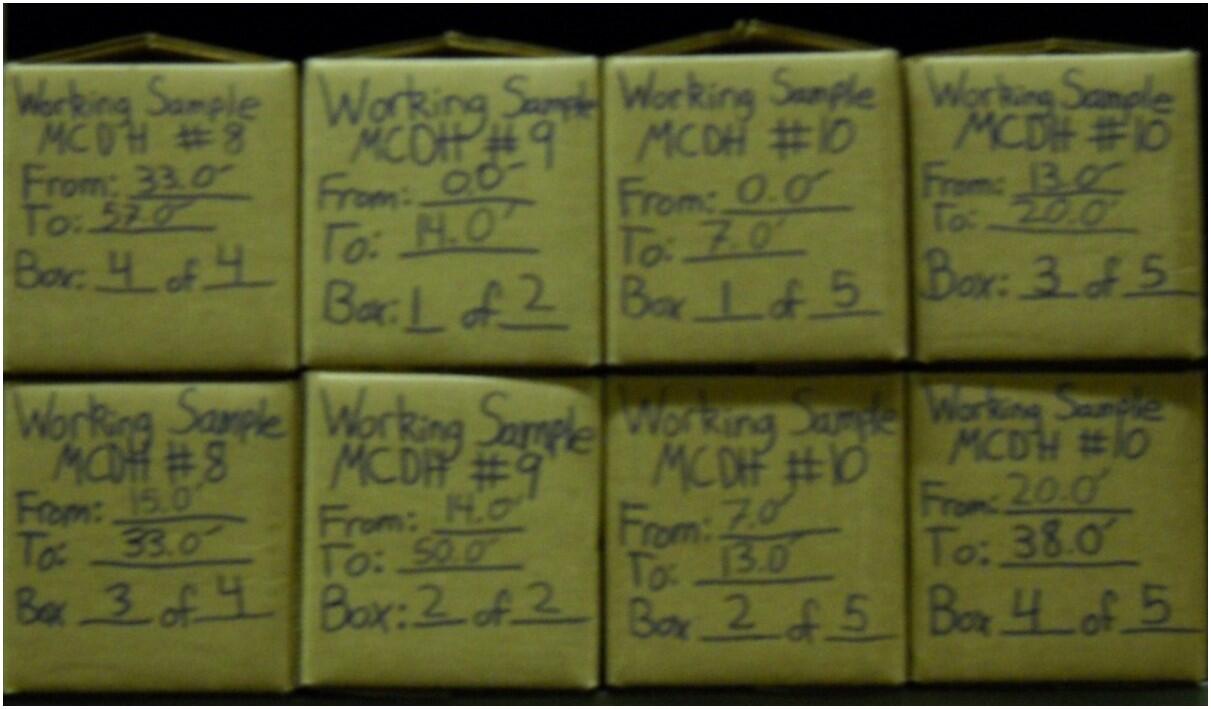 Working Sample
MCDH #8
From: 33.0'
To: 57.0'
Box: 4 of 4
Working Sample
MCDH #9
From: 0.0'
To: 14.0'
Box: 1 of 2
Working Sample
MCDH #10
From: 0.0'
To: 7.0'
Box 1 of 5
Working Sample
MCDH #10
From: 13.0'
To: 20.0'
Box: 3 of 5
Working Sample
MCDH #8
From: 15.0'
To: 33.0'
Box 3 of 4
Working Sample
MCDH #9
From: 14.0'
To: 50.0'
Box: 2 of 2
Working Sample
MCDH #10
From: 7.0'
To: 13.0'
Box 2 of 5
Working Sample
MCDH #10
From: 20.0'
To: 38.0'
Box 4 of 5